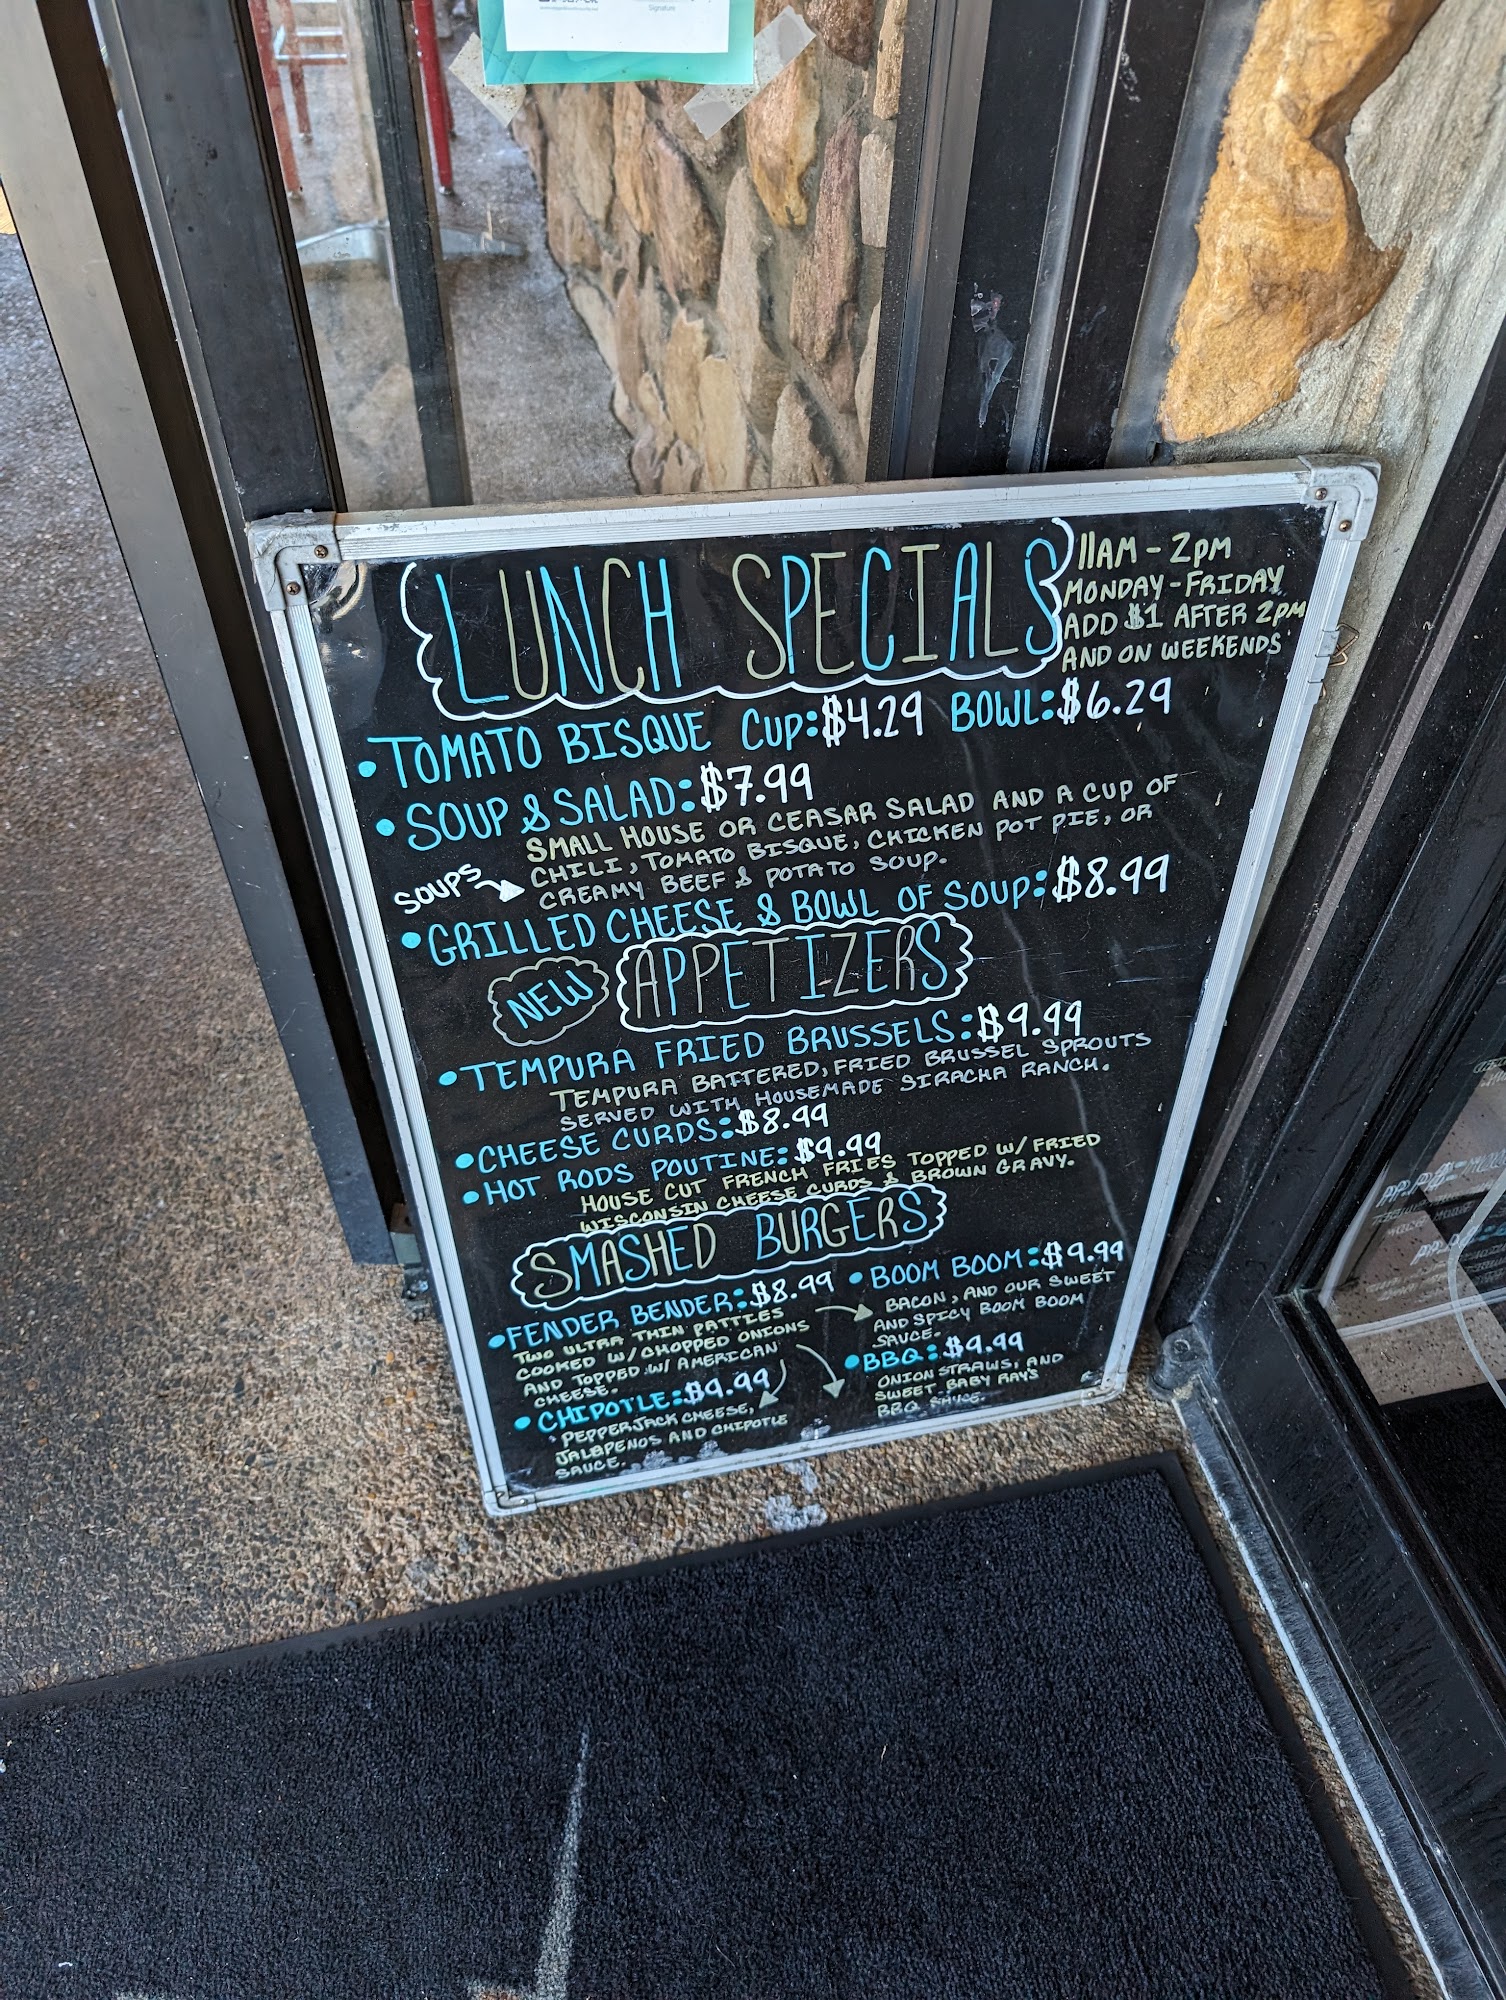 Signature
LUNCH SPECIALS
11AM - 2PM
MONDAY - FRIDAY
ADD $1 AFTER 2PM
AND ON WEEKENDS
• TOMATO BISQUE CUP: $4.29 BOWL: $6.29
• SOUP & SALAD: $7.99
SMALL HOUSE OR CEASAR SALAD AND A CUP OF
SOUPS → CHILI, TOMATO BISQUE, CHICKEN POT PIE, OR
CREAMY BEEF & POTATO SOUP.
• GRILLED CHEESE & BOWL OF SOUP: $8.99
NEW APPETIZERS
• TEMPURA FRIED BRUSSELS: $9.99
TEMPURA BATTERED, FRIED BRUSSEL SPROUTS
SERVED WITH HOUSEMADE SIRACHA RANCH.
• CHEESE CURDS: $8.99
• HOT RODS POUTINE: $9.99
HOUSE CUT FRENCH FRIES TOPPED W/ FRIED
WISCONSIN CHEESE CURDS & BROWN GRAVY.
SMASHED BURGERS
• FENDER BENDER: $8.99
TWO ULTRA THIN PATTIES
COOKED W/ CHOPPED ONIONS
AND TOPPED W/ AMERICAN
CHEESE.
• CHIPOTLE: $9.99
PEPPERJACK CHEESE,
JALAPENOS AND CHIPOTLE
SAUCE.
• BOOM BOOM: $9.99
BACON, AND OUR SWEET
AND SPICY BOOM BOOM
SAUCE.
• BBQ: $9.99
ONION STRAWS, AND
SWEET BABY RAYS
BBQ SAUCE.